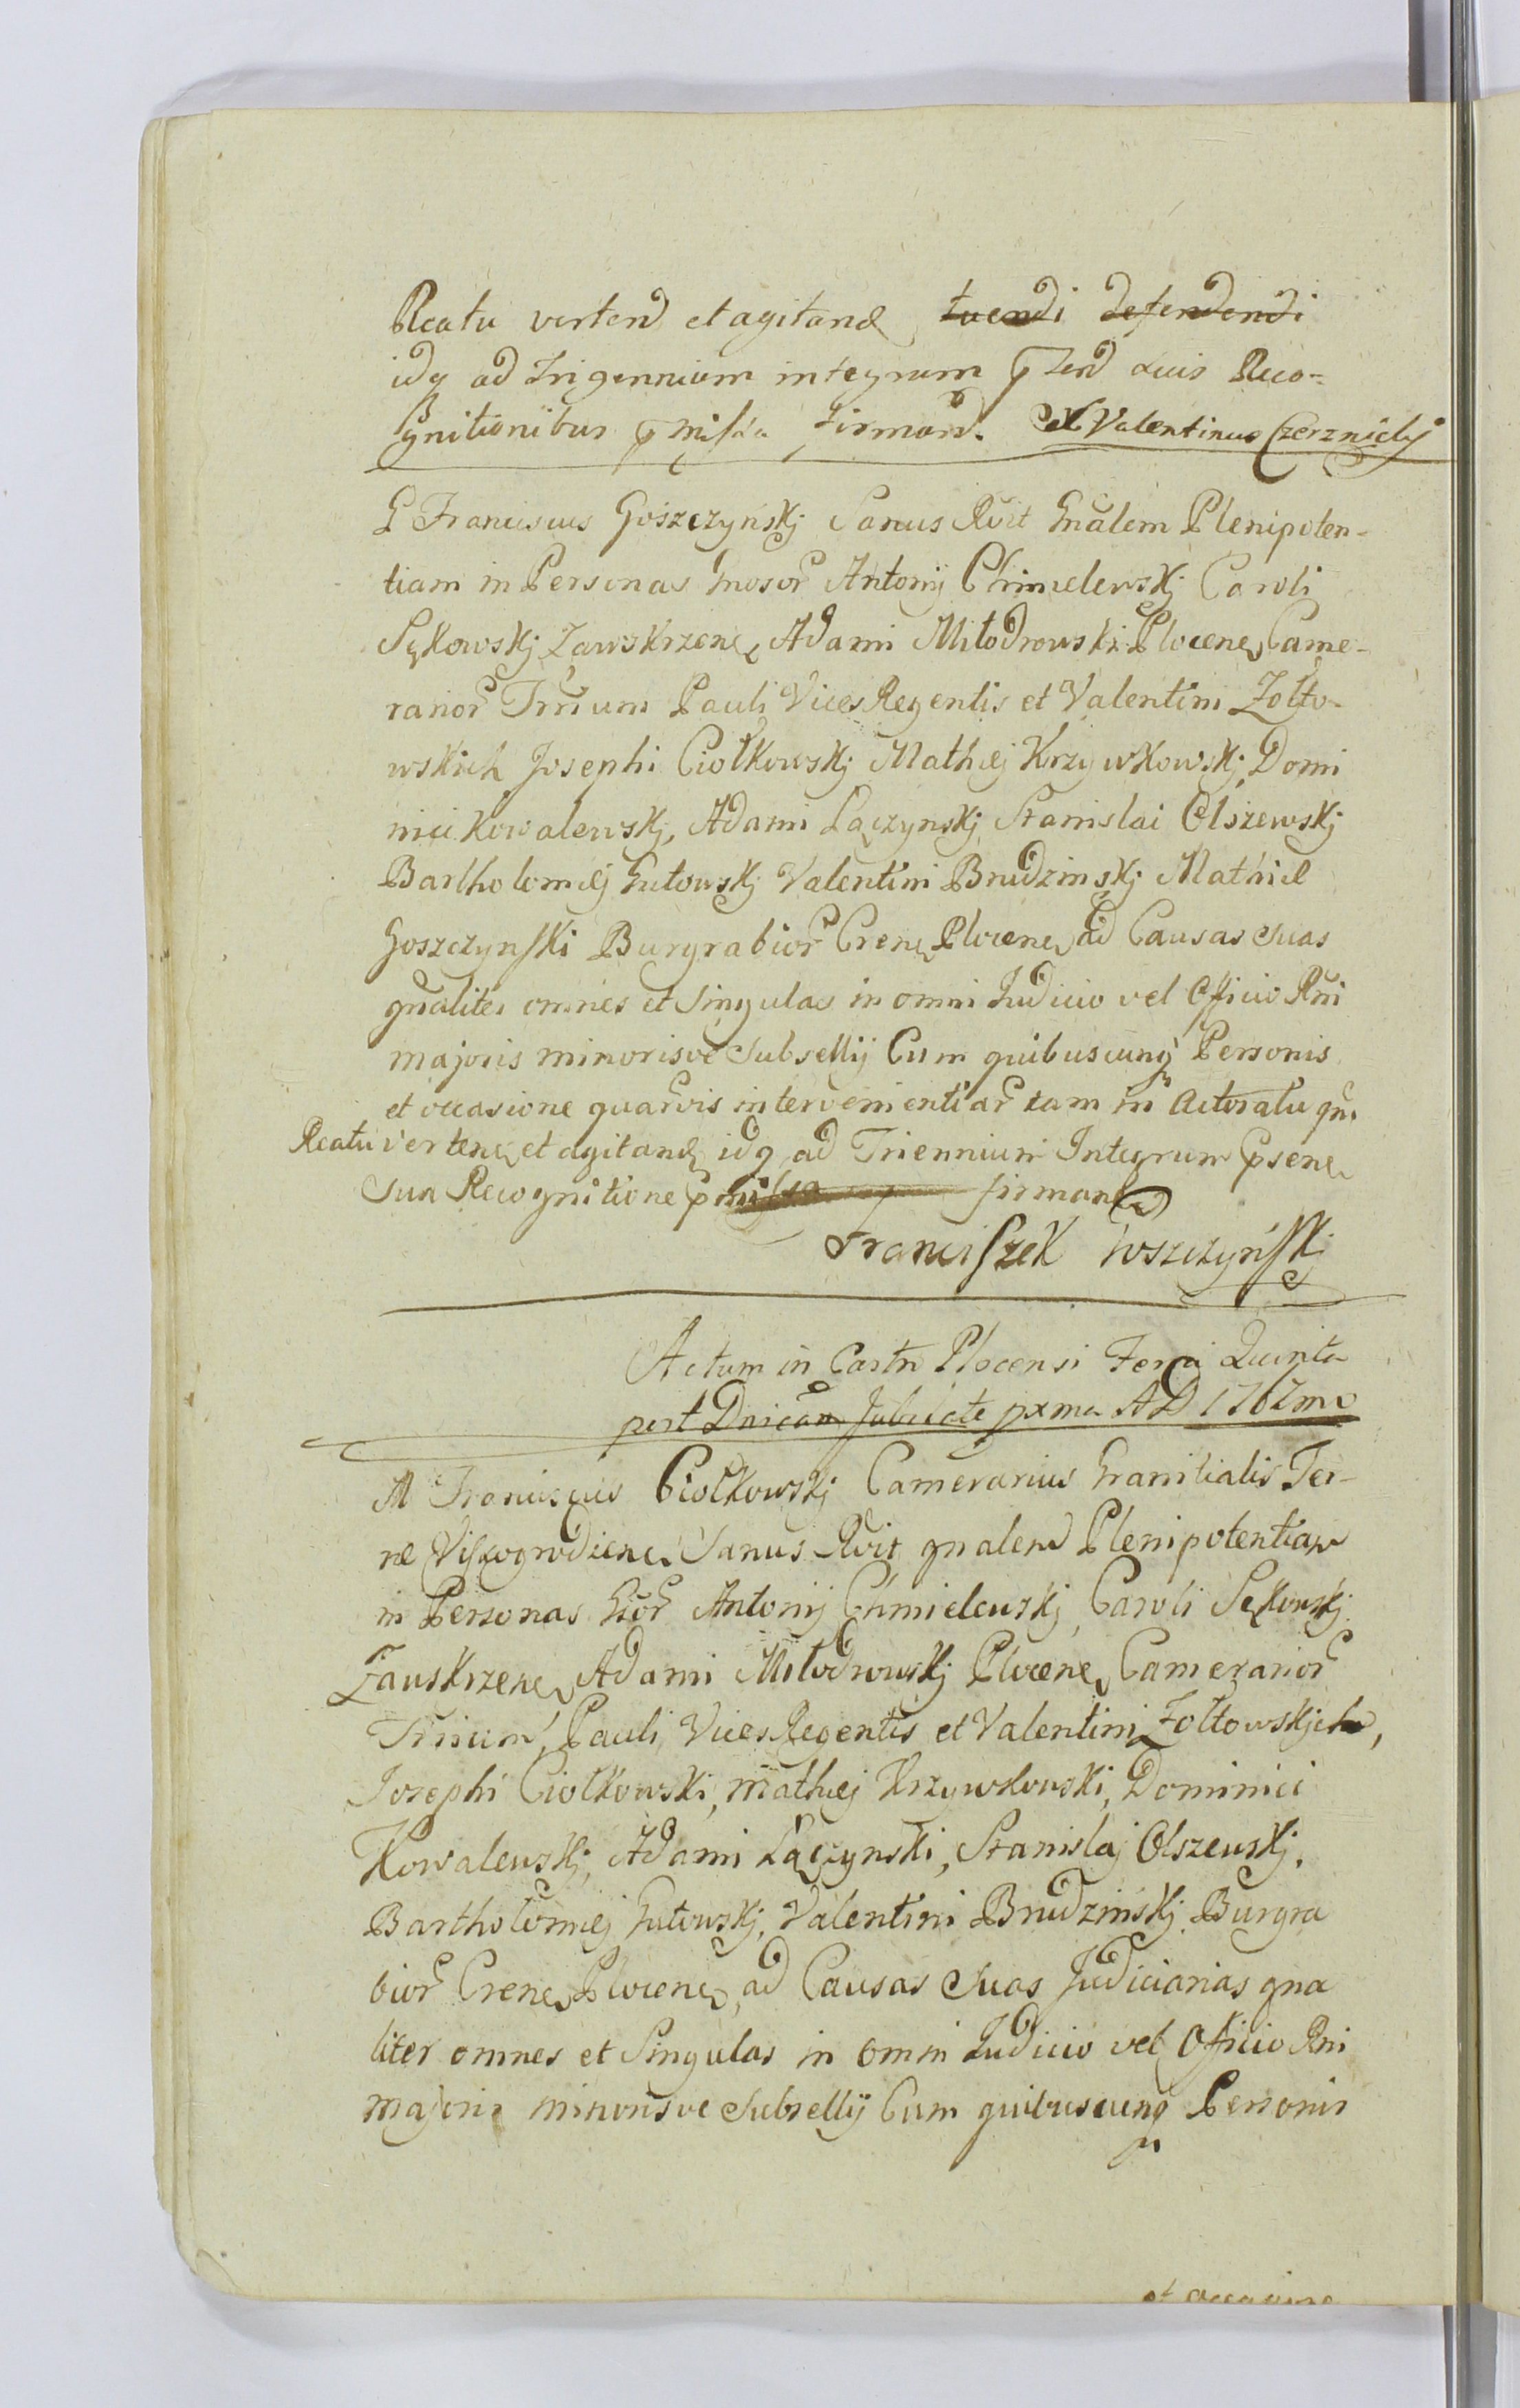 Reatu vertend et agitand tuendi defendendi
idq ad Trigennium integrum p Zend suis Reco=
gnitionibus p missa firmand. Valentinus Czerznicky
G Franciscus Goszczynskj Sanus Rvit Gnalem Plenipoten-
tiam in Personas Gnosor Antonij Chmielewskj Caroli
Sękowskj Zawskrzene Adami Młodrowski Plocene Came-
rarior Trrium Pauli Vices Regentis et Valentini Zołto-
wskich Josephi Ciołkowskj Mathiej Krzywkowskj Domi
nici Kowalewskj, Adami Łączynskj Stanislai Olszewskj
Bartholomiej Gutowskj Valentini Brudzinskj Mathiæ
Goszczynski Burgrabior Crene Plocene ad Causas suas
gnaliter omnes et Singulas in omni Judicio vel Officio Rni
majoris minorisve Subsellij Cum quibuscunq Personis
et occasione quarvis intervenientiar tam in Actoratu qm
Reatu vertene et agitand idq ad Triennium Integrum psene
Sua Recognitione pmissa firmand
Franciszek Goszczyński
Actum in Castro Plocensi Feria Quinta
post Dnicam Jubilate pxma AD 1762mo
M Franciscus Ciołkowskj Camerarius Granitialis Ter-
ræ Vissogrodiene Sanus Rvit gnalem Plenipotentiam
in Personas Gsor Antonij Chmielewskj, Caroli Sękowskj
Zauskrzene, Adami Młodrowskj Plocene Camerarior
Trrium, Pauli Vices Regentis et Valentini Zołtowskich,
Josephi Ciołkowski, Mathiej Krzywkowski, Dominici
Kowalewskj, Adami Łączynski, Stanislaj Olszewskj,
Bartholomiej Gutowskj, Valentini Brudzinskj Burgra
bior Crene Plocene, ad Causas suas Judiciarias gna
liter omnes et Singulas in omni Judicio vel Officio Rni
majoris minorisve Subsellij Cum quibuscunq Personis
et occasione